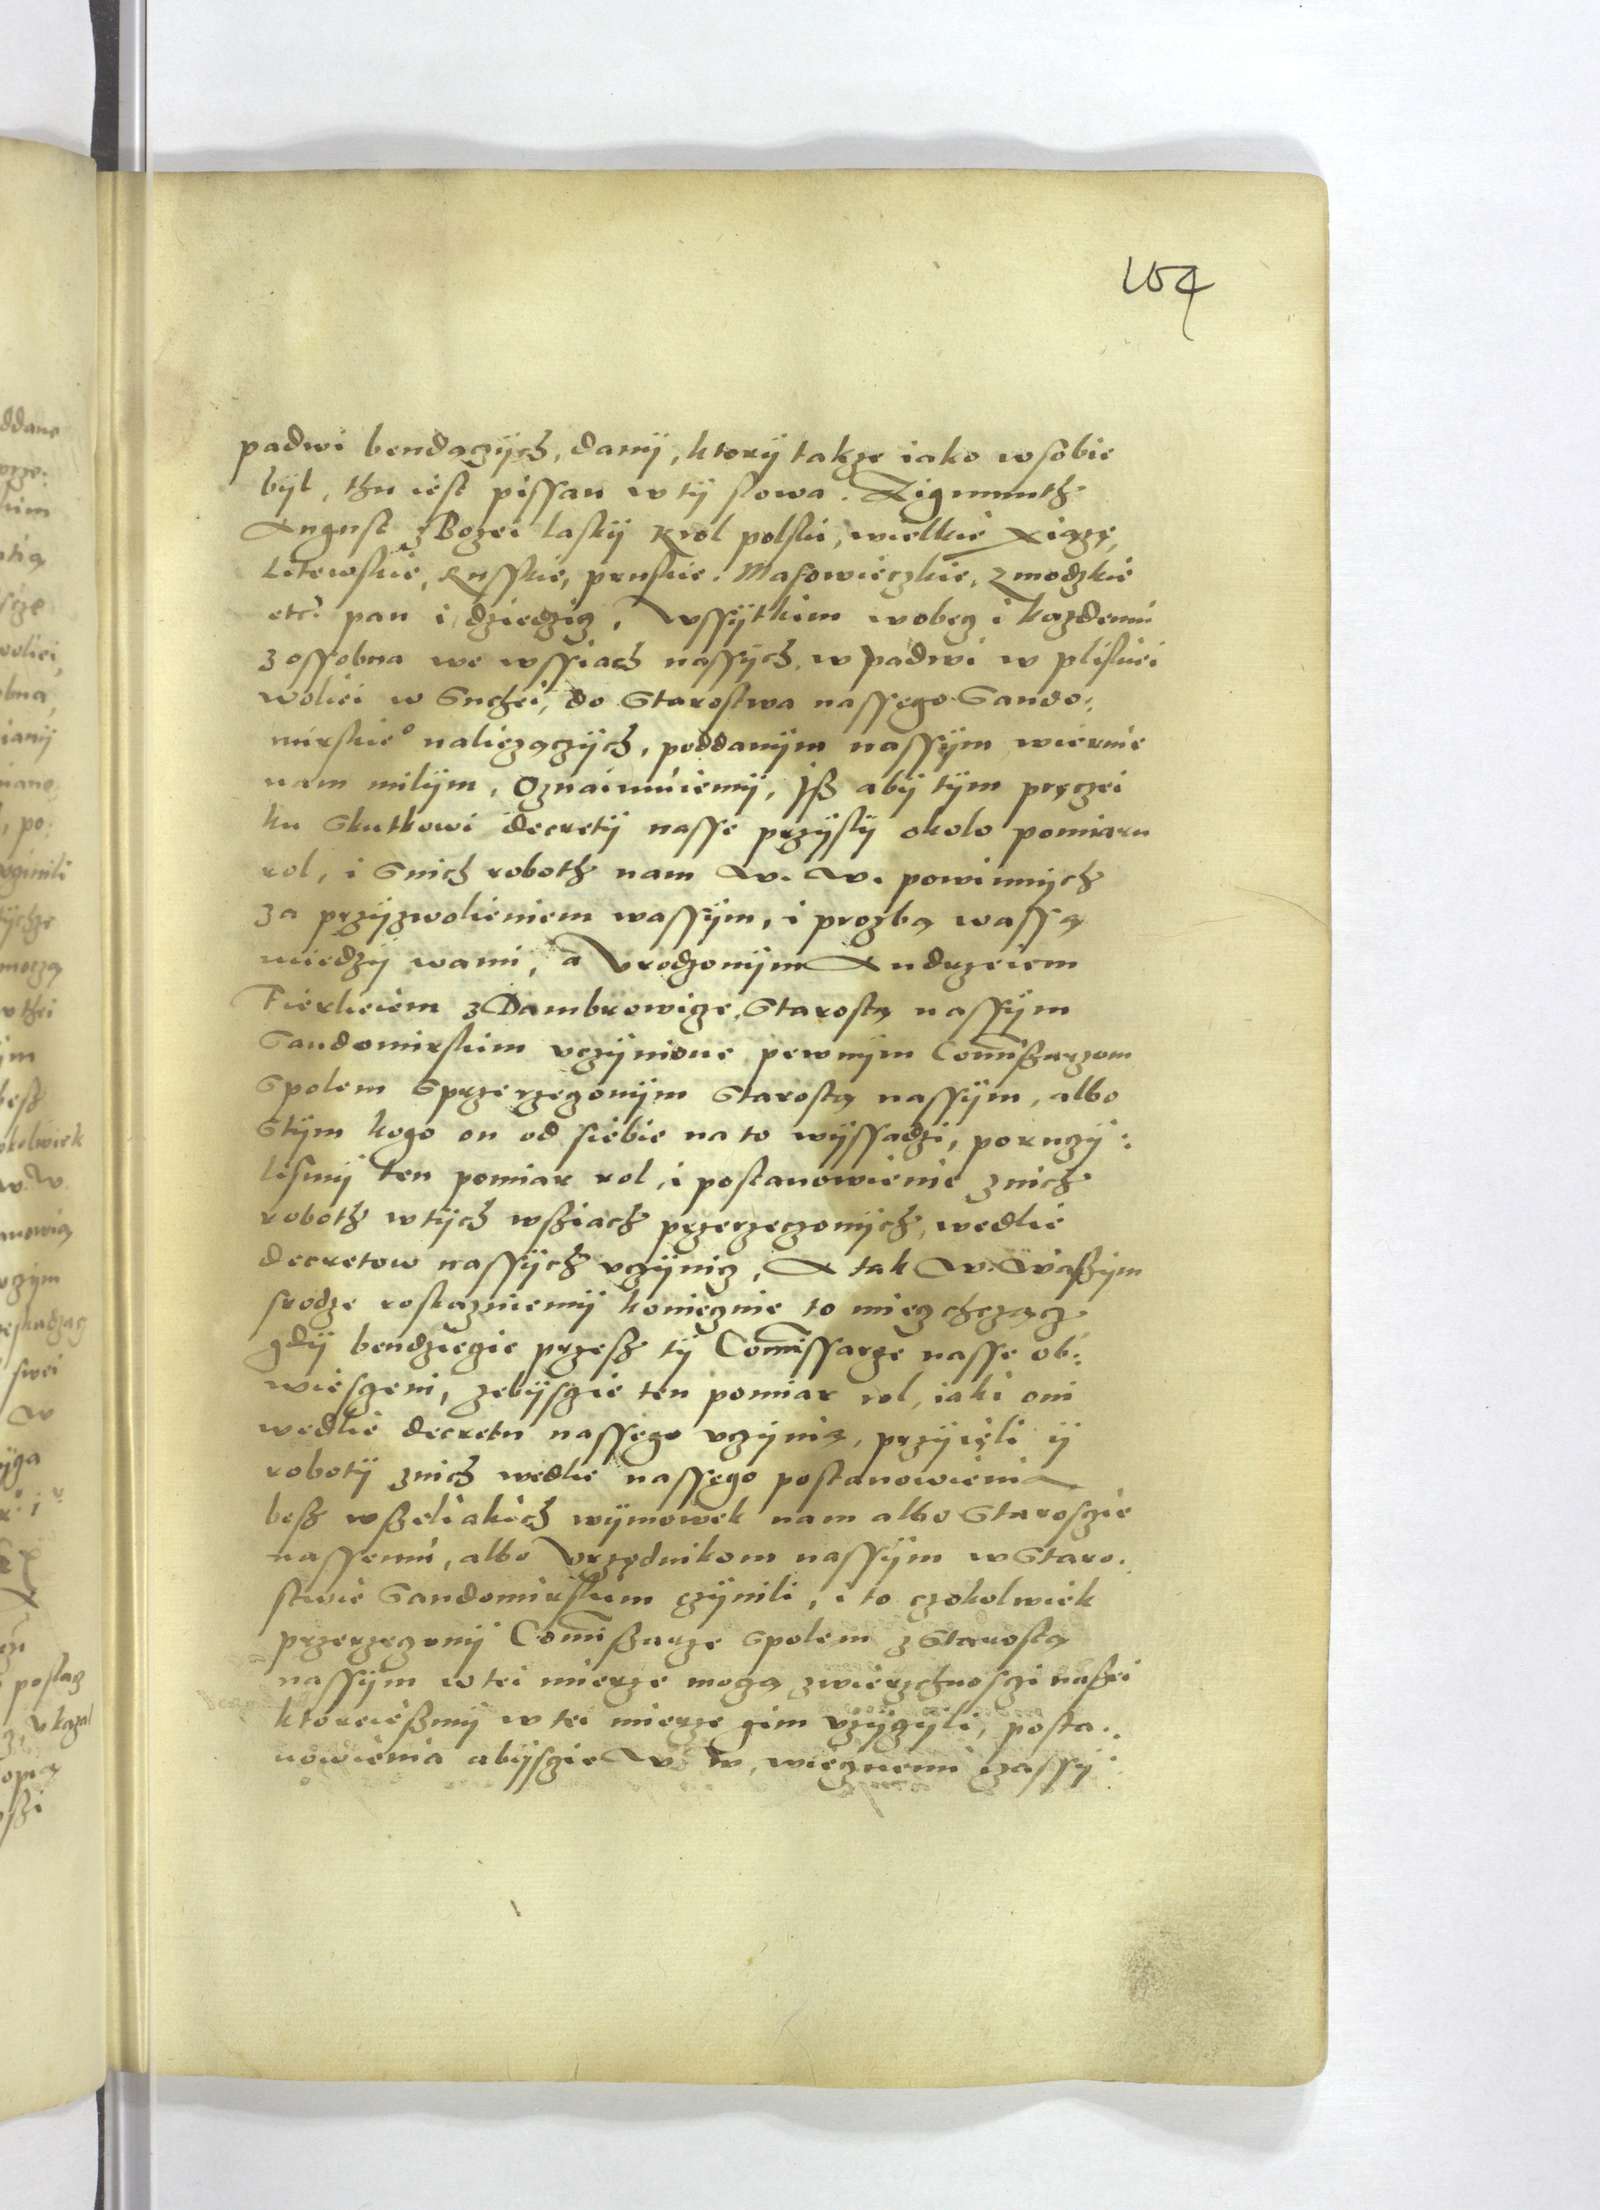 104
padwi bendaczÿch, danÿ, ktorÿ takze iako wsobie
bÿl, thu iest pissan w tÿ slowa. Zigmunth
August z Bozei laskÿ Krol polski, wielkie Xiązę,
Litewskie, Russkie, pruskie, Masowieczkie, Zmodzkie
etc. pan i dziedzicz, Wssÿtkim wobecz i kazdemu
zossobna we wssiach nassÿch w padwi w plisniei
woliei w Suchei, do Starostwa nassego Sando:
mirskieo naliezączÿch, poddanÿm nassÿm wiernie
nam milÿm, Oznaimuiemÿ, Jsz abÿ tÿm pręczei
ku skutkowi decretÿ nasse przÿslÿ okolo pomiaru
rol, i snich roboth nam w. w. powinnÿch
za przÿzwoleniem wassÿm, i prozbą wassą
miedzÿ wami, a Urodzonÿm Andrzeiem
Fierlieiem z Dambrowicze, Starostą nassÿm
Sandomirskim uczÿnione pewnÿm Comiszarzom
Spolem Sprzerzeczonÿm Starostą nassÿm, albo
Stÿm kogo on od siebie na to wÿssadzi, poruczÿ:
lismÿ ten pomiar rol, i postanowienie znich
roboth wtÿch wsziach przerzeczonÿch, wedlie
decretow nassÿch uczÿnicz, A tak W. Waszÿm
srodze roskazuiemÿ koniecznie to miecz chczącz
gdÿ bendziecie przesz tÿ Comissarze nasse ob:
wiesczeni, zebÿscie ten pomiar rol, iaki oni
wedlie decretu nassego uczÿnią, przÿięli ÿ
robotÿ znich wedlie nassego postanowienia
besz wszeliakich wÿmowek nam albo Starosczie
nassemu, albo Urzędnikom nassÿm w Staro.
stwie Sandomirskim czÿnili, i to czokolwiek
przerzeczonÿ Comiszarze spolem z Starostą
nassÿm w tei mierze mogą zwierzchnosczi naszei
ktoreieszmÿ w tei mierze gim uzÿczÿli, posta.
nowienia abÿscie W W, wiecznemi czassÿ